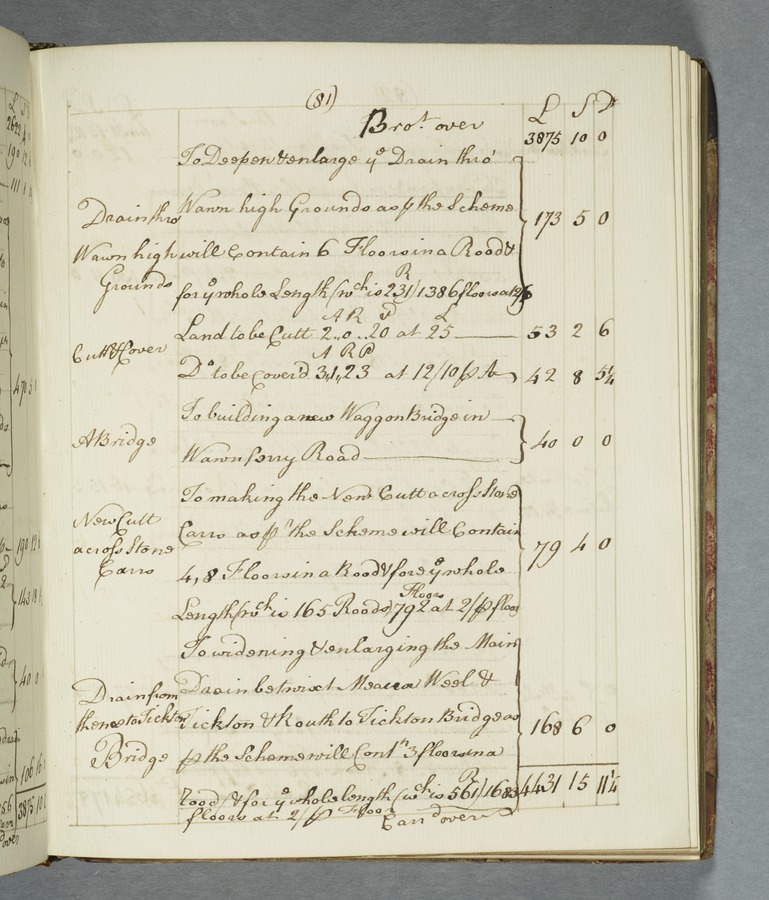 (81)
L S D
Bro.t over 3875 10 0
To Deepen & enlarge ye Drain thro'
Drain thro Wawn high Grounds as p the Scheme 173 5 0
Wawn high will Contain 6 Floors in a Rood &
Grounds for ye whole Length (wch is 231 R) 1386 floors at 2/6
Cutt & Cover Land to be Cutt 2 A .. 0 R .. 20 P at 25 L 53 2 6
Do to be Cover'd 3 A , 1 R , 23 P at 12/10 p A 42 8 5¼
To building a new Waggon Bridge in
A Bridge Wawn ferry Road 40 0 0
To making the New Cutt across Stone
New Cutt Carrs as p the Scheme will Contain
across Stone 79 4 0
Carrs 4,8 Floors in a Rood & for ye whole
Length (wch is 165 Roods) 792 Floors at 2/ p floor
To widening & enlarging the Main
Drain from Drain betwixt Meaux Weel &
thence to Tickton Tickton & Routh to Tickton Bridge as 168 6 0
Bridge p the Scheme will Contn 3 floors in a
Rood (& for ye whole length (wch is 561 R) 1683 4431 15 11¼
floors at 2/ p Floor Carrd over